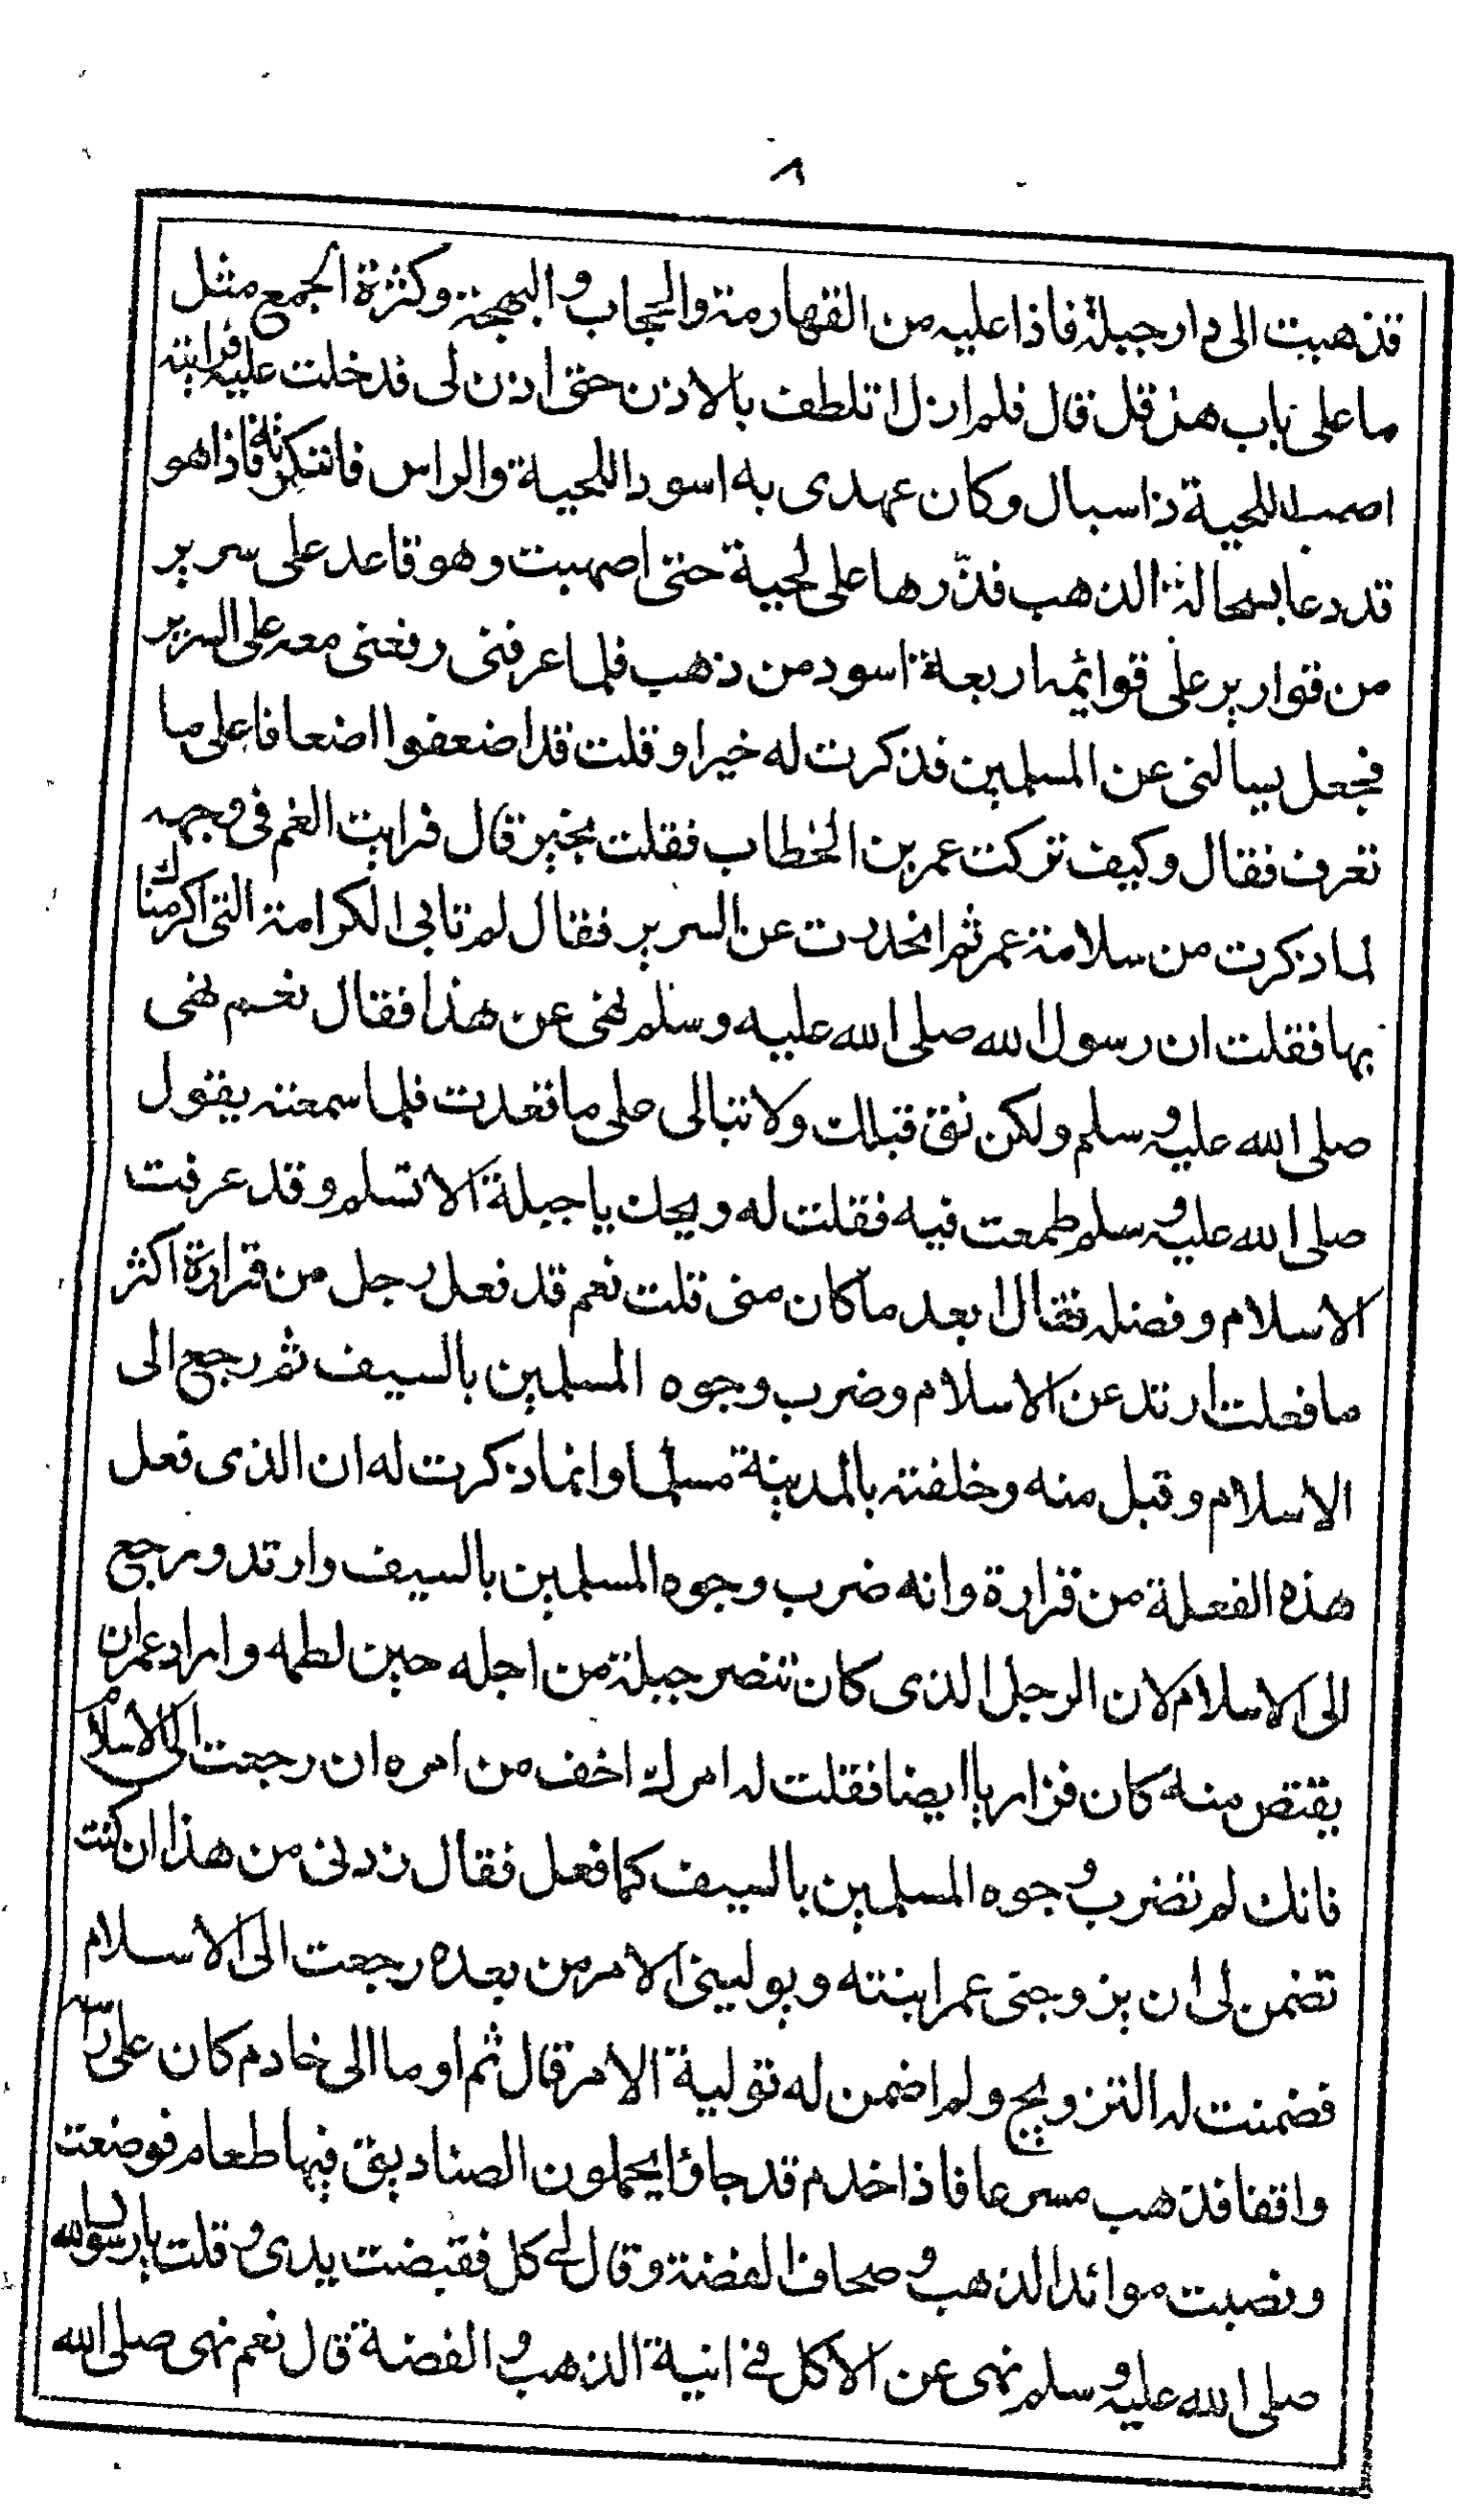 ٨
فذهبت الى دار جبلة فاذا عليه من القهارمة والحجاب والبهجة وكثرة الجمع مثل
ما على باب هرقل قال فلم ازل اتلطف بالاذن حتى اذن لى فدخلت عليه فرايته
اصهب اللحية ذا سبال وكان عهدى به اسود اللحية والراس فانكرته فاذا هو
قد دعا بسحالة الذهب فذّرها على لحية حتى اصهبت وهو قاعد على سرير
من قوارير على قوائمه اربعة اسود من ذهب فلما عرفنى رفعنى معه على السرير
فجعل يسالنى عن المسلمين فذكرت له خيرا وقلت قد اضعفوا اضعافا على ما
تعرف فقال وكيف تركت عمر بن الخطاب فقلت بخير قال فرايت الغم فى وجهه
لما ذكرت من سلامة عمر ثم انحدرت عن السرير فقال لم تابى الكرامة التى اكرمناك
بها فقلت ان رسول الله صلى الله عليه وسلم نهى عن هذا فقال نعم نهى
صلى الله عليه وسلم ولكن نق قبلك ولا تبالى على ما تعدت فلما سمعته يقول
صلى الله عليه وسلم طمعت فيه فقلت له ويحك يا جبلة الا تسلم وقد عرفت
الاسلام وفضله فقال ا بعد ما كان منى قلت نعم قد فعل رجل من فزارة اكثر
ما فعلت ارتد عن الاسلام وضرب وجوه المسلمين بالسيف ثم رجع الى
الاسلام وقبل منه وخلفته بالمدينة مسلما وانما ذكرت له ان الذى فعل
هذه الفعلة من فزارة وانه ضرب وجوه المسلمين بالسيف وارتد ورجع
الى الاسلام لان الرجل الذى كان تنصر جبلة من اجله حين لطمه واراد عمر ان
يقتص منه كان فزاريا ايضا فقلت له امرك اخف من امره ان رجعت الى الاسلام
فانك لم تضرب وجوه المسلمين بالسيف كما فعل فقال زدنى من هذا ان كنت
تضمن لى ان يزوجنى عمر ابنته ويولينى الامر من بعده رجعت الى الاسلام
فضمنت له التزويج ولم اضمن له تولية الامر قال ثم اوما الى خادم كان على راسه
واقفا فذهب مسرعا فاذا خدم قد جاؤا يحملون الصناديق فيها طعام فوضعت
ونصبت موائد الذهب وصحاف الفضة وقال لى كل فقبضت يدى وقلت يا رسول الله
صلى الله عليه وسلم نهى عن الاكل فى انية الذهب والفضة قال نعم نهى صلى الله